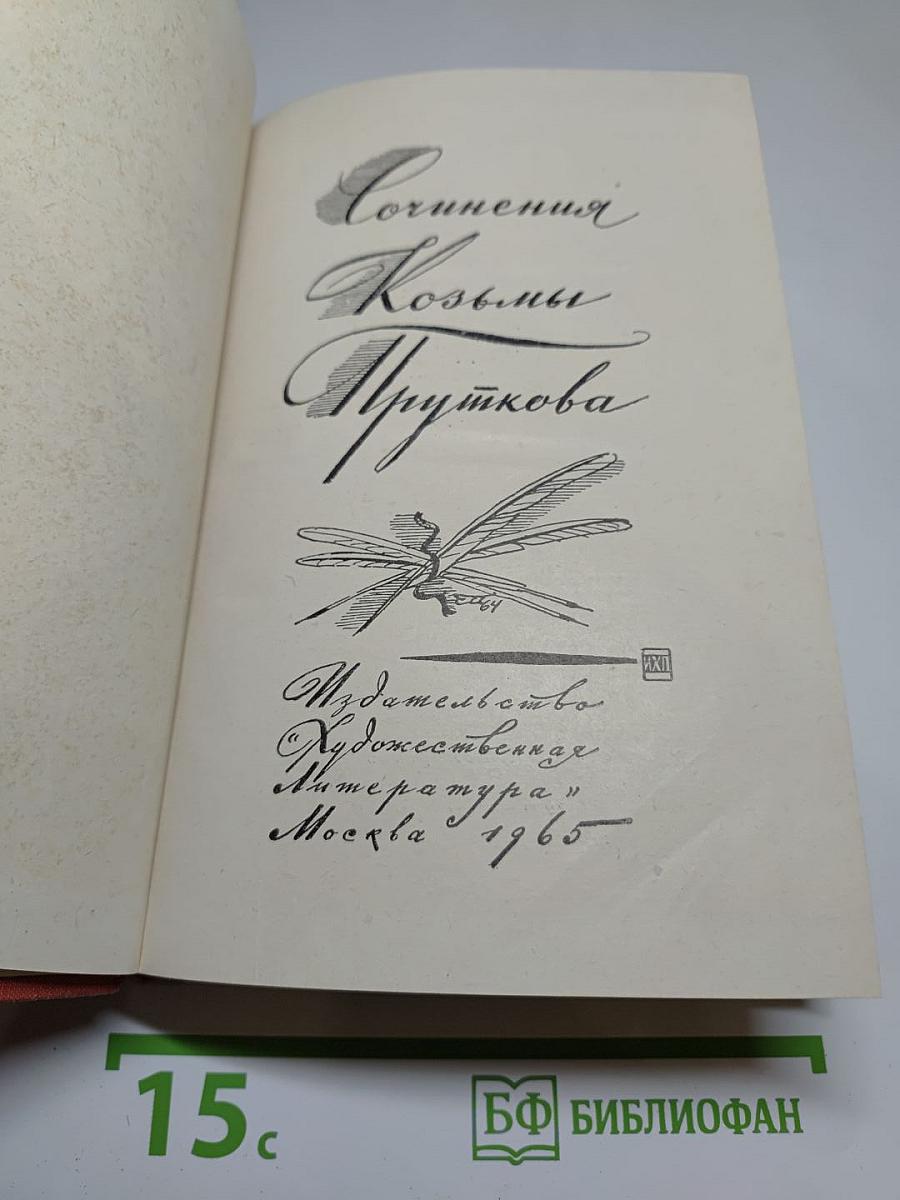 Сочинения
Козьмы
Пруткова
64
ИХЛ
Издательство
"Художественная
Литература"
Москва 1965
15 с
БФ БИБЛИОФАН